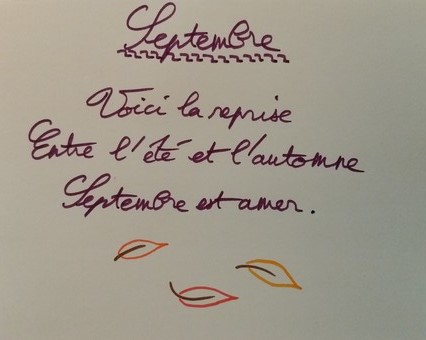 Septembre
Voici la reprise
Entre l'été et l'automne
Septembre est amer.